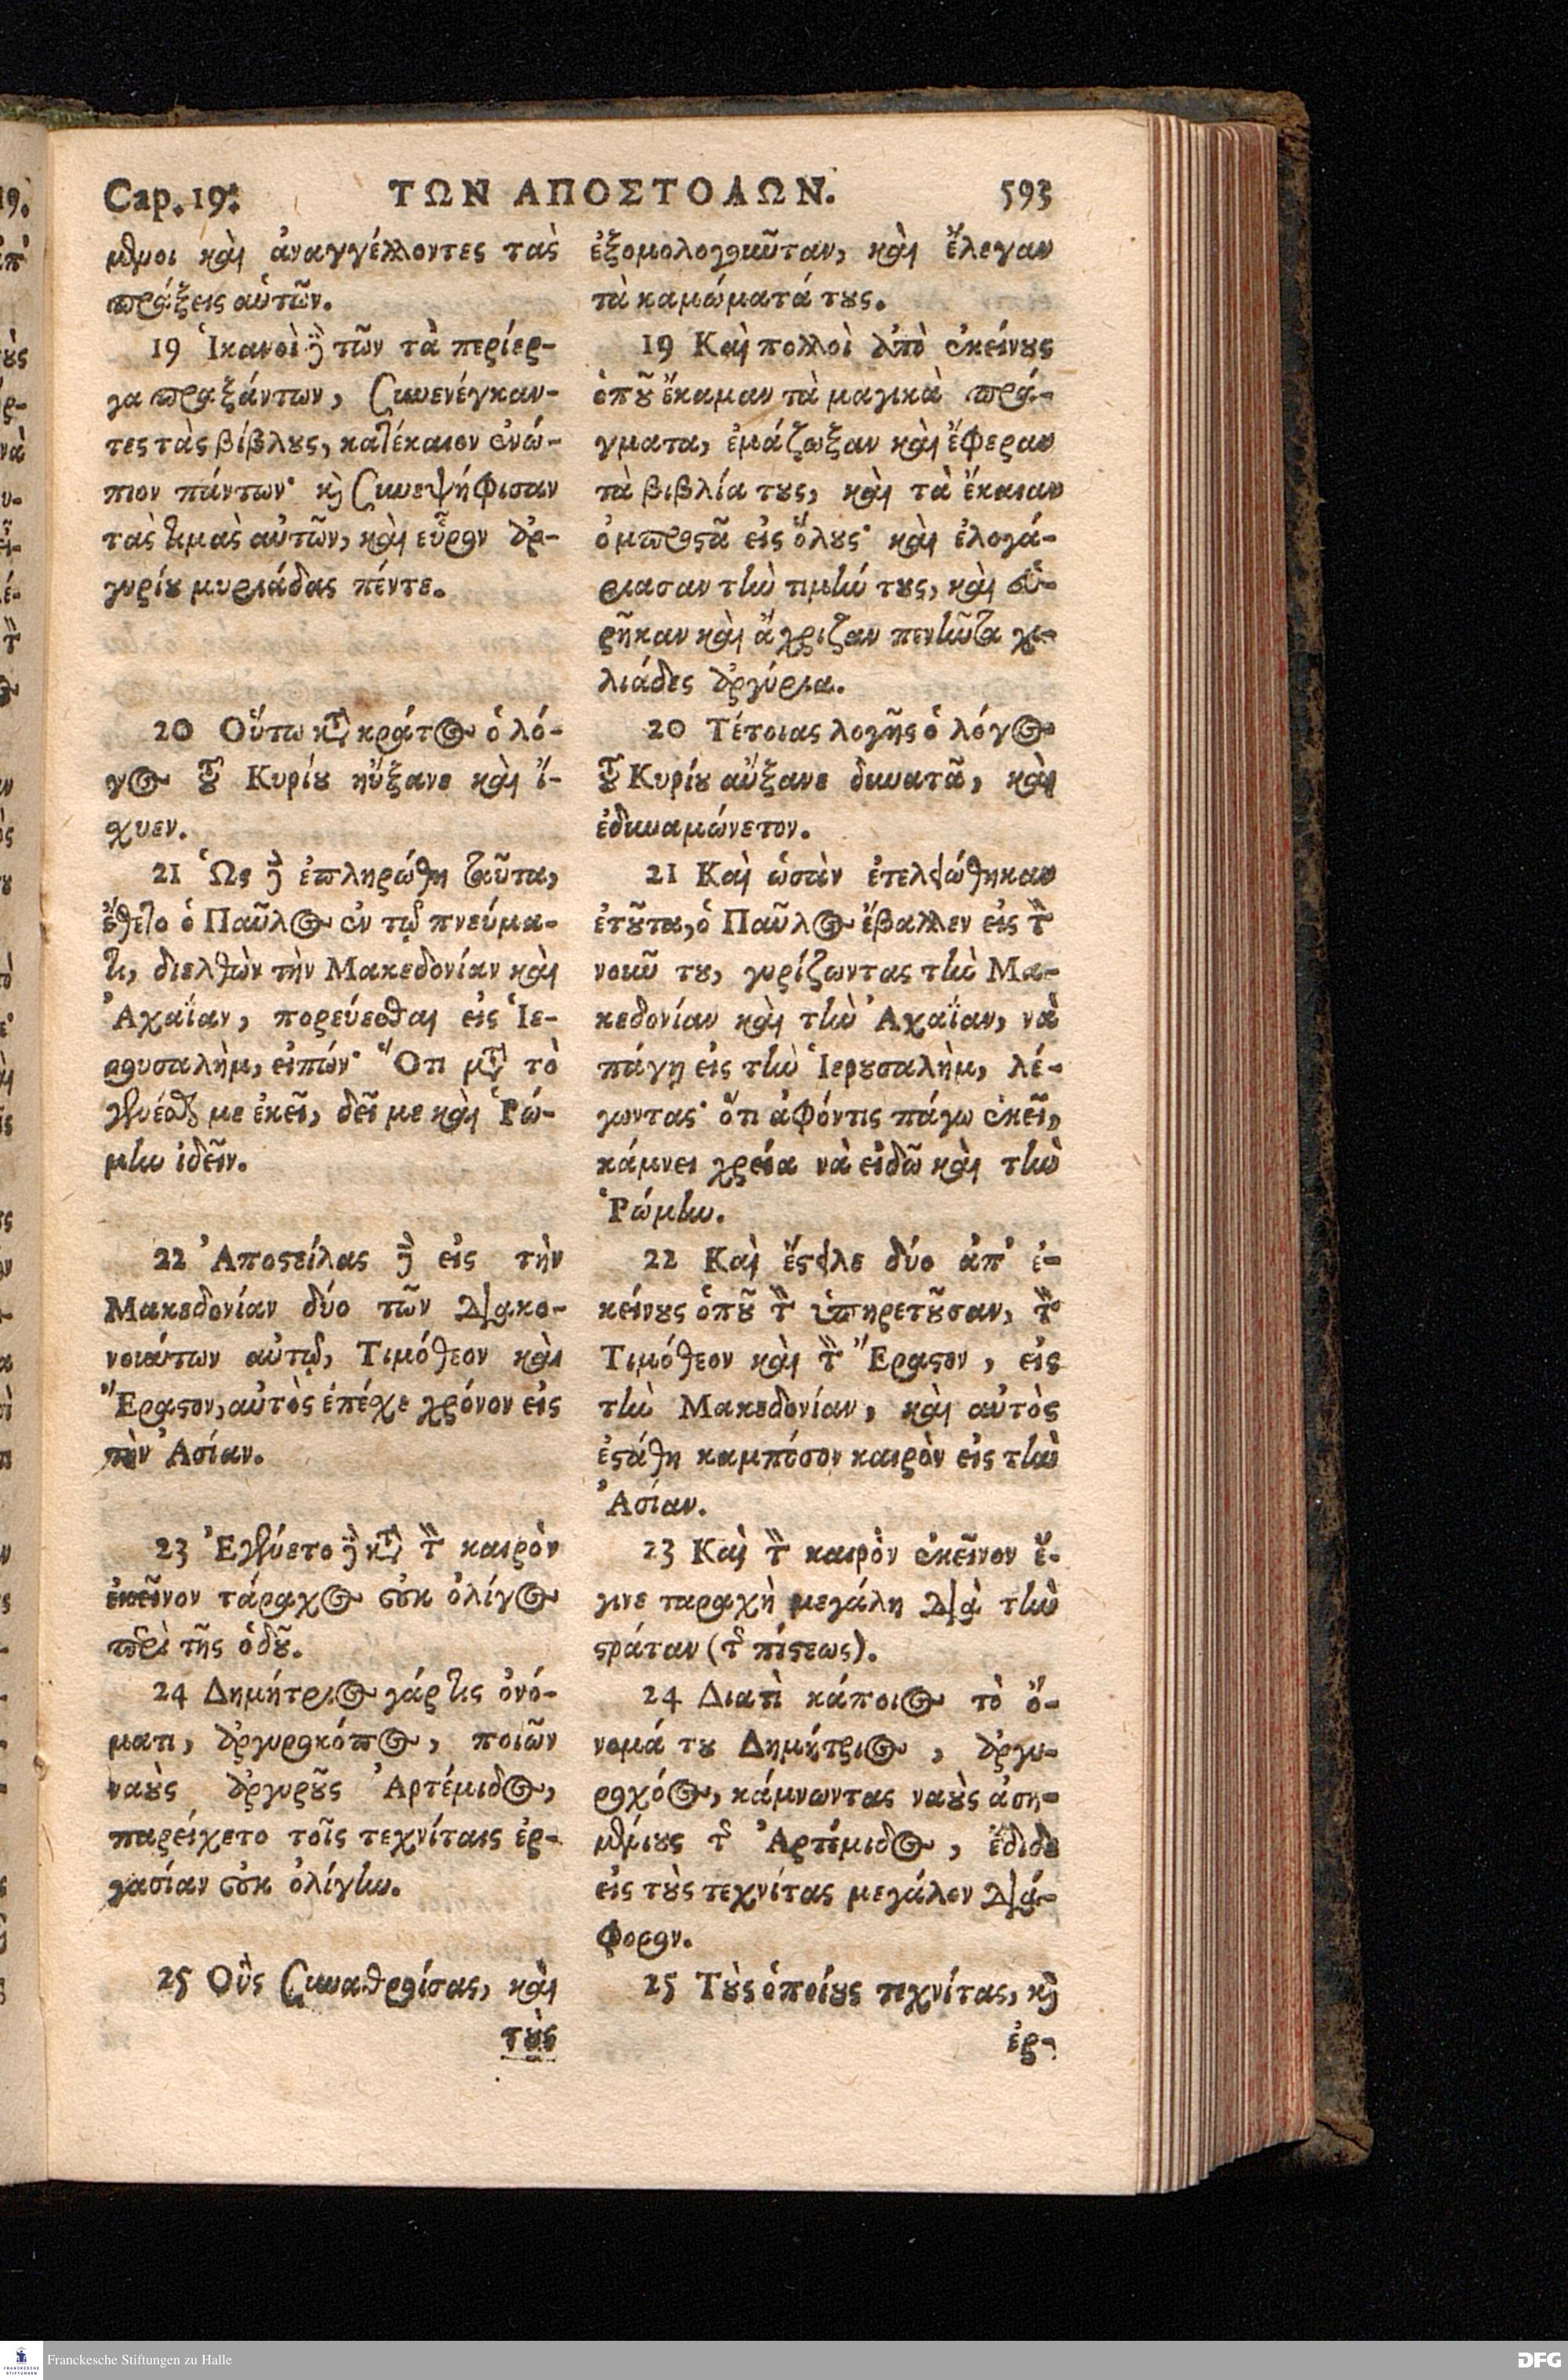 Cap. 19. ΤΩΝ ΑΠΟΣΤΟΛΩΝ. 593
μϸμοι καὶ ἀναγγέλλοντες τὰς
πράξεις αὑτῶν.
19 Ἱκανοὶ ϳ τῶν τὰ περίερ-
γα πραξάντων, συνενέγκαν-
τες τὰς βίβλȣς, κατέκαιον ἐνώ-
πιον πάντων· κỳ συνεψήφισαν
τὰς τιμὰς αὐτῶν, καὶ εὗρον ἀρ-
γυρίȣ μυριάδας πέντε.
20 Οὕτω κτ̀ κράτος ὁ λό-
γος τȣ͂ Κυρίȣ ηὔξανε καὶ ἴ-
χυεν.
21 Ὡς ϳ ἐπληρώθη ταῦτα,
ἔθετο ὁ Παῦλος ἐν τῷ πνεύμα-
τι, διελθὼν τὴν Μακεδονίαν καὶ
Ἀχαΐαν, πορεύεσθαι εἰς Ἱε-
ρουσαλὴμ, εἰπών· Ὅτι μτ̀ τὸ
γενέσθ με ἐκεῖ, δεῖ με καὶ Ῥώ-
μην ἰδεῖν.
22 Ἀποστείλας ϳ εἰς τὴν
Μακεδονίαν δύο τῶν διακο-
νούντων αὐτῷ, Τιμόθεον καὶ
Ἔραστον, αὐτὸς ἐπέχε χρόνον εἰς
τὴν Ἀσίαν.
23 Ἐγένετο ϳ κτ̀ τ̀ καιρὸν
ἐκεῖνον τάραχος οὐκ ὀλίγος
περὶ τῆς ὁδȣ͂.
24 Δημήτριος γάρ τις ὀνό-
ματι, ἀργυροκόπος, ποιῶν
ναȣ̀ς ἀργυρȣ͂ς Ἀρτέμιδος,
παρείχετο τοῖς τεχνίταις ἐρ-
γασίαν οὐκ ὀλίγην.
25 Οὓς συναθροίσας, καὶ
τȣ̀ς
ἐξομολογοῦνταν, καὶ ἔλεγαν
τὰ καμώματά τȣς.
19 Καὶ πολλοὶ ἀπὸ ἐκείνȣς
ὁπȣ͂ ἔκαμαν τὰ μαγικὰ πρά-
γματα, ἐμάζωξαν καὶ ἔφεραν
τὰ βιβλία τȣς, καὶ τὰ ἔκαιαν
ὀμπροστᾶ εἰς ὅλȣς· καὶ ἐλογά-
ριασαν τὴν τιμήν τȣς, καὶ εὑ-
ρῆκαν καὶ ἄχριζαν πενῆντα χι-
λιάδες ἀργύρια.
20 Τέτοιας λογῆς ὁ λόγος
τȣ͂ Κυρίȣ αὔξανε δυνατᾶ, καὶ
ἐδυναμώνετον.
21 Καὶ ὡσὰν ἐτελειώθηκαν
ἐτȣ͂τα, ὁ Παῦλος ἔβαλλεν εἰς τ̀
νοῦν τȣ, γυρίζωντας τὴν Μα-
κεδονίαν καὶ τὴν Ἀχαΐαν, νὰ
πάγῃ εἰς τὴν Ἱερȣσαλὴμ, λέ-
γωντας· ὅτι ἀφόντις πάγω ἐκεῖ,
κάμνει χρεία νὰ εἰδῶ καὶ τὴν
Ῥώμην.
22 Καὶ ἔστειλε δύο ἀπ' ἐ-
κείνȣς ὁπȣ͂ τ̀ ὑπηρετȣ͂σαν, τ̀
Τιμόθεον καὶ τ̀ Ἔραστον, εἰς
τὴν Μακεδονίαν, καὶ αὐτὸς
ἐστάθη καμπόσον καιρὸν εἰς τὴν
Ἀσίαν.
23 Καὶ τ̀ καιρὸν ἐκεῖνον ἔ-
γινε ταραχὴ μεγάλη διὰ τὴν
στράταν (τ͂ πίστεως).
24 Διατὶ κάποιος τὸ ὄ-
νομά τȣ Δημήτριος, ἀργυ-
ροχόος, κάμνωντας ναȣ̀ς ἀση-
μϸμίȣς τ͂ Ἀρτέμιδος, ἔδιδε
εἰς τȣ̀ς τεχνίτας μεγάλον διά-
φορον.
25 Τȣ̀ς ὁποίȣς τεχνίτας, κỳ
ἐρ-
Franckesche Stiftungen zu Halle
DFG